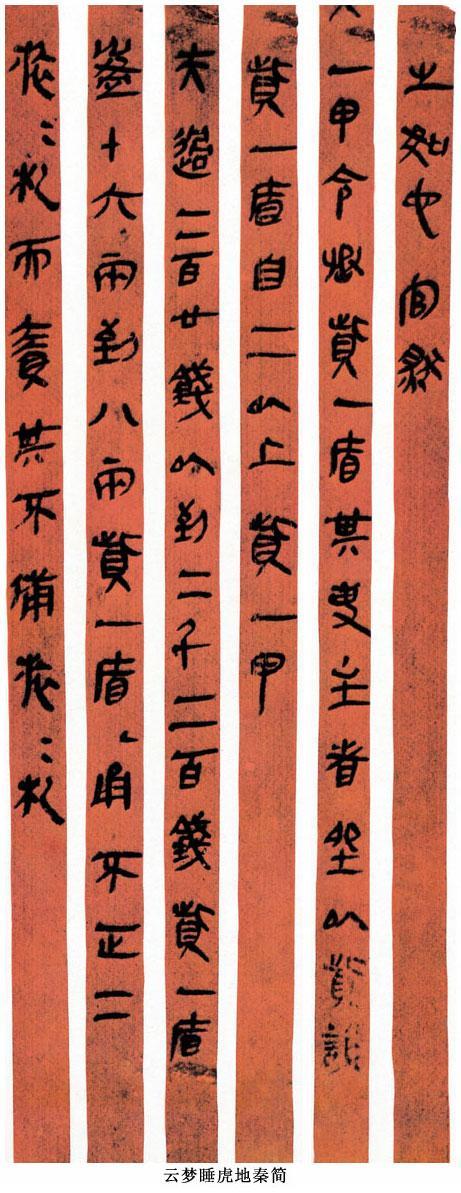 之如它官然
一甲令丞貲一盾其吏主者坐以貲誶
貲一盾自二以上貲一甲
夫過二百廿錢以到二千二百錢貲一盾
盈十六兩到八兩貲一盾㇄甬不正二
旅=札而責其不備旅=札
云梦睡虎地秦简